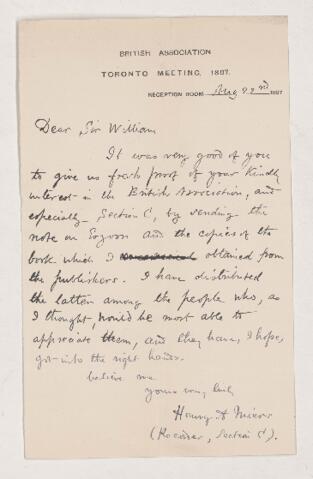 BRITISH ASSOCIATION
TORONTO MEETING, 1897.
RECEPTION ROOM Aug 22nd 1897
Dear Sir William
It was very good of you
to give us fresh proof of your kindly
interest in the British Association, and
especially Section C, by sending the
note on Eozoon and the copies of the
book which I obtained from
the publishers. I have distributed
the latter among the people who, as
I thought, would be most able to
appreciate them, and they have, I hope,
got into the right hands.
believe me
yours very truly
Henry A Miers
(Recorder, Section C).